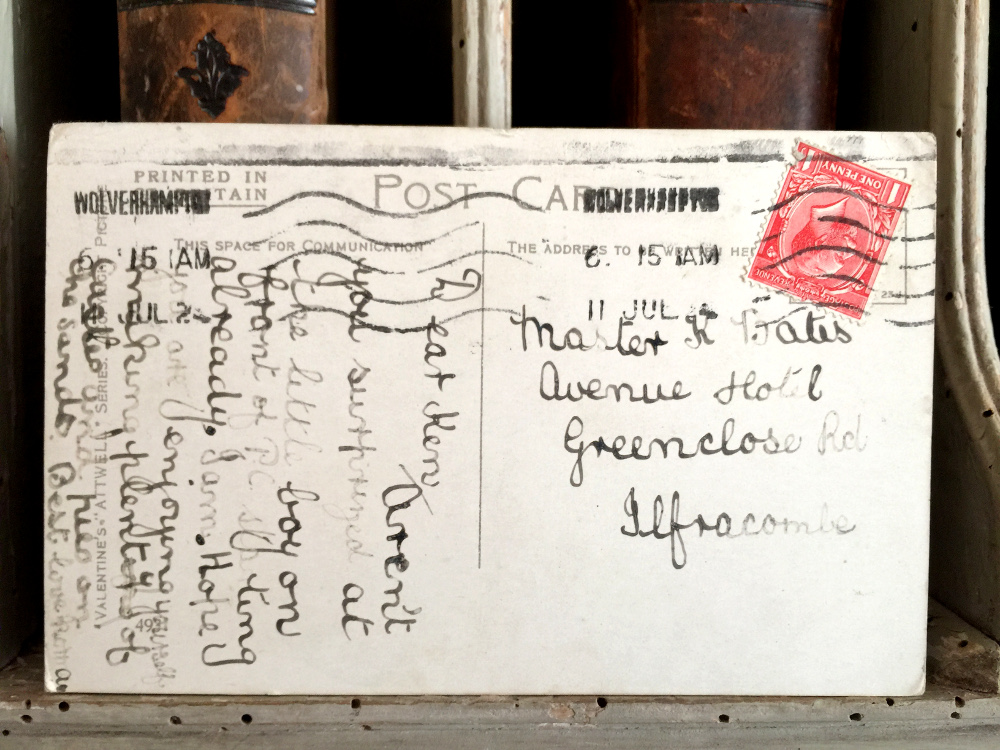 PRINTED IN
POST CARD
WOLVERHAMPTON
THIS SPACE FOR COMMUNICATION
THE ADDRESS TO BE WRITTEN HERE
15 AM
JUL
6. 15 AM
11 JUL
ONE PENNY
REVENUE
Dear Ken
Aren't
you surprized at
the little boy on
front of P.C. sitting
already. Jann. Hope
enjoying yourself
making plenty of
Castles and pies on
the sands. Best love from
Master K Bates
Avenue Hotel
Greenclose Rd
Ilfracombe
"VALENTINE'S" "ATTWELL" SERIES.